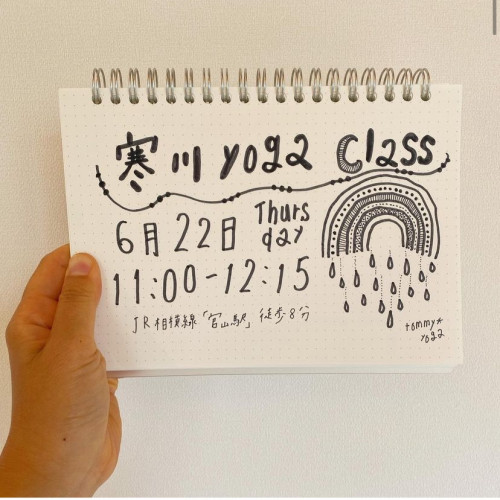 寒川 yoga Class
6月22日 Thurs
day
11:00-12:15
JR相模線「宮山駅」徒歩8分
tommy*
yoga